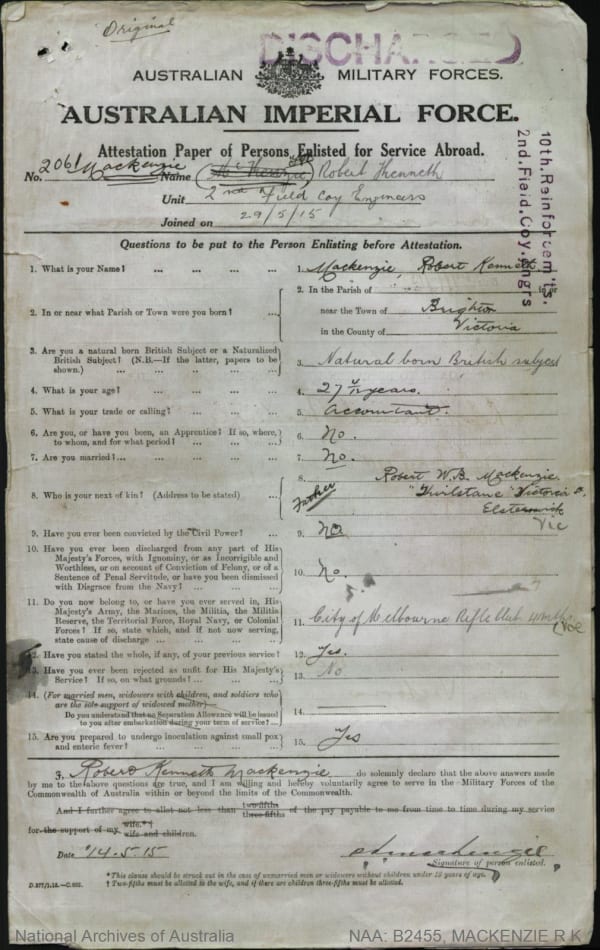 Original
DISCHARGED
AUSTRALIAN MILITARY FORCES.
AUSTRALIAN IMPERIAL FORCE.
Attestation Paper of Persons Enlisted for Service Abroad.
10th. Reinforcem'ts.
2nd. Field. Coy. Engrs
No. 2061 Mackenzie Name Robert Kenneth
Unit 2nd Field Coy Engineers
Joined on 29/5/15
Questions to be put to the Person Enlisting before Attestation.
1. What is your Name? ... ... ... ... 1. Mackenzie, Robert Kenneth
2. In or near what Parish or Town were you born? ... 2. In the Parish of in or
near the Town of Brighton
in the County of Victoria
3. Are you a natural born British Subject or a Naturalized
British Subject? (N.B.—If the latter, papers to be
shown.) ... ... ... ... ... 3. Natural born British subject
4. What is your age? ... ... ... ... 4. 27 years.
5. What is your trade or calling? ... ... ... 5. Accountant.
6. Are you, or have you been, an Apprentice? If so, where,
to whom, and for what period? ... ... ... 6. No.
7. Are you married?... ... ... ... ... 7. No.
8. Who is your next of kin? (Address to be stated) ... 8. Robert W.B. Mackenzie
Father
Victoria
Elsternwick
Vic
9. Have you ever been convicted by the Civil Power? ... 9. No
10. Have you ever been discharged from any part of His
Majesty's Forces, with Ignominy, or as Incorrigible and
Worthless, or on account of Conviction of Felony, or of a
Sentence of Penal Servitude, or have you been dismissed
with Disgrace from the Navy? ... ... ... 10. No.
11. Do you now belong to, or have you ever served in, His
Majesty's Army, the Marines, the Militia, the Militia
Reserve, the Territorial Force, Royal Navy, or Colonial
Forces? If so, state which, and if not now serving,
state cause of discharge ... ... ... 11. City of Melbourne Rifle Club
12. Have you stated the whole, if any, of your previous service? 12. Yes.
13. Have you ever been rejected as unfit for His Majesty's
Service? If so, on what grounds? ... ... 13. No
14. (For married men, widowers with children, and soldiers who
are the sole support of widowed mother)—
Do you understand that no Separation Allowance will be issued
to you after embarkation during your term of service? ... 14.
15. Are you prepared to undergo inoculation against small pox
and enteric fever? ... ... ... ... 15. Yes
I, Robert Kenneth Mackenzie do solemnly declare that the above answers made
by me to the above questions are true, and I am willing and hereby voluntarily agree to serve in the Military Forces of the
Commonwealth of Australia within or beyond the limits of the Commonwealth.
And I further agree to allot not less than two-fifths three-fifths of the pay payable to me from time to time during my service
for the support of my wife.*† wife and children.
Date 14.5.15
Signature of person enlisted.
*This clause should be struck out in the case of unmarried men or widowers without children under 18 years of age.
† Two-fifths must be allotted to the wife, and if there are children three-fifths must be allotted.
National Archives of Australia NAA: B2455, MACKENZIE R K